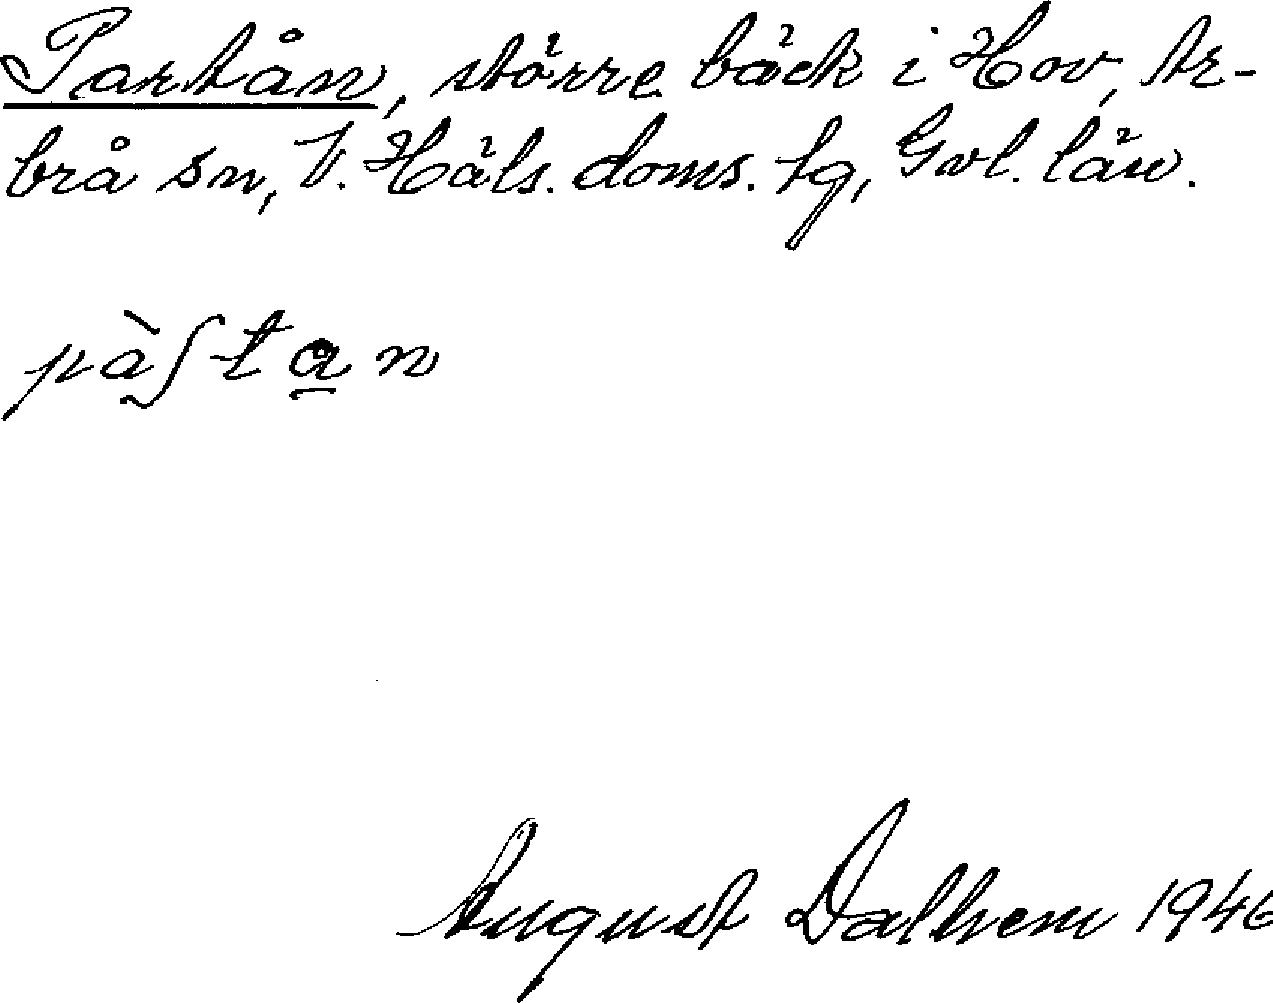 Partån, större bäck i Hov, Ar-
brå sn, V. Häls. doms. tg, Gvl. län.
pàʃtan
August Dalhem 1946